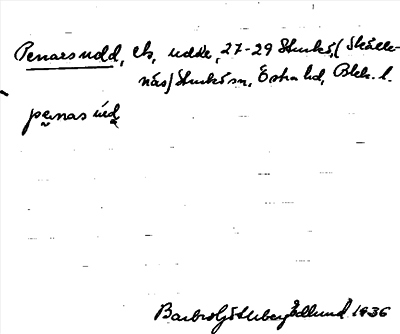 Penarsudd, eb, udde, 27-29 Sturkö, (Skälle-
näs) Sturkö sn, Östra hd, Blek. l.
penas úd
Barbro Götheberg Edlund 1936